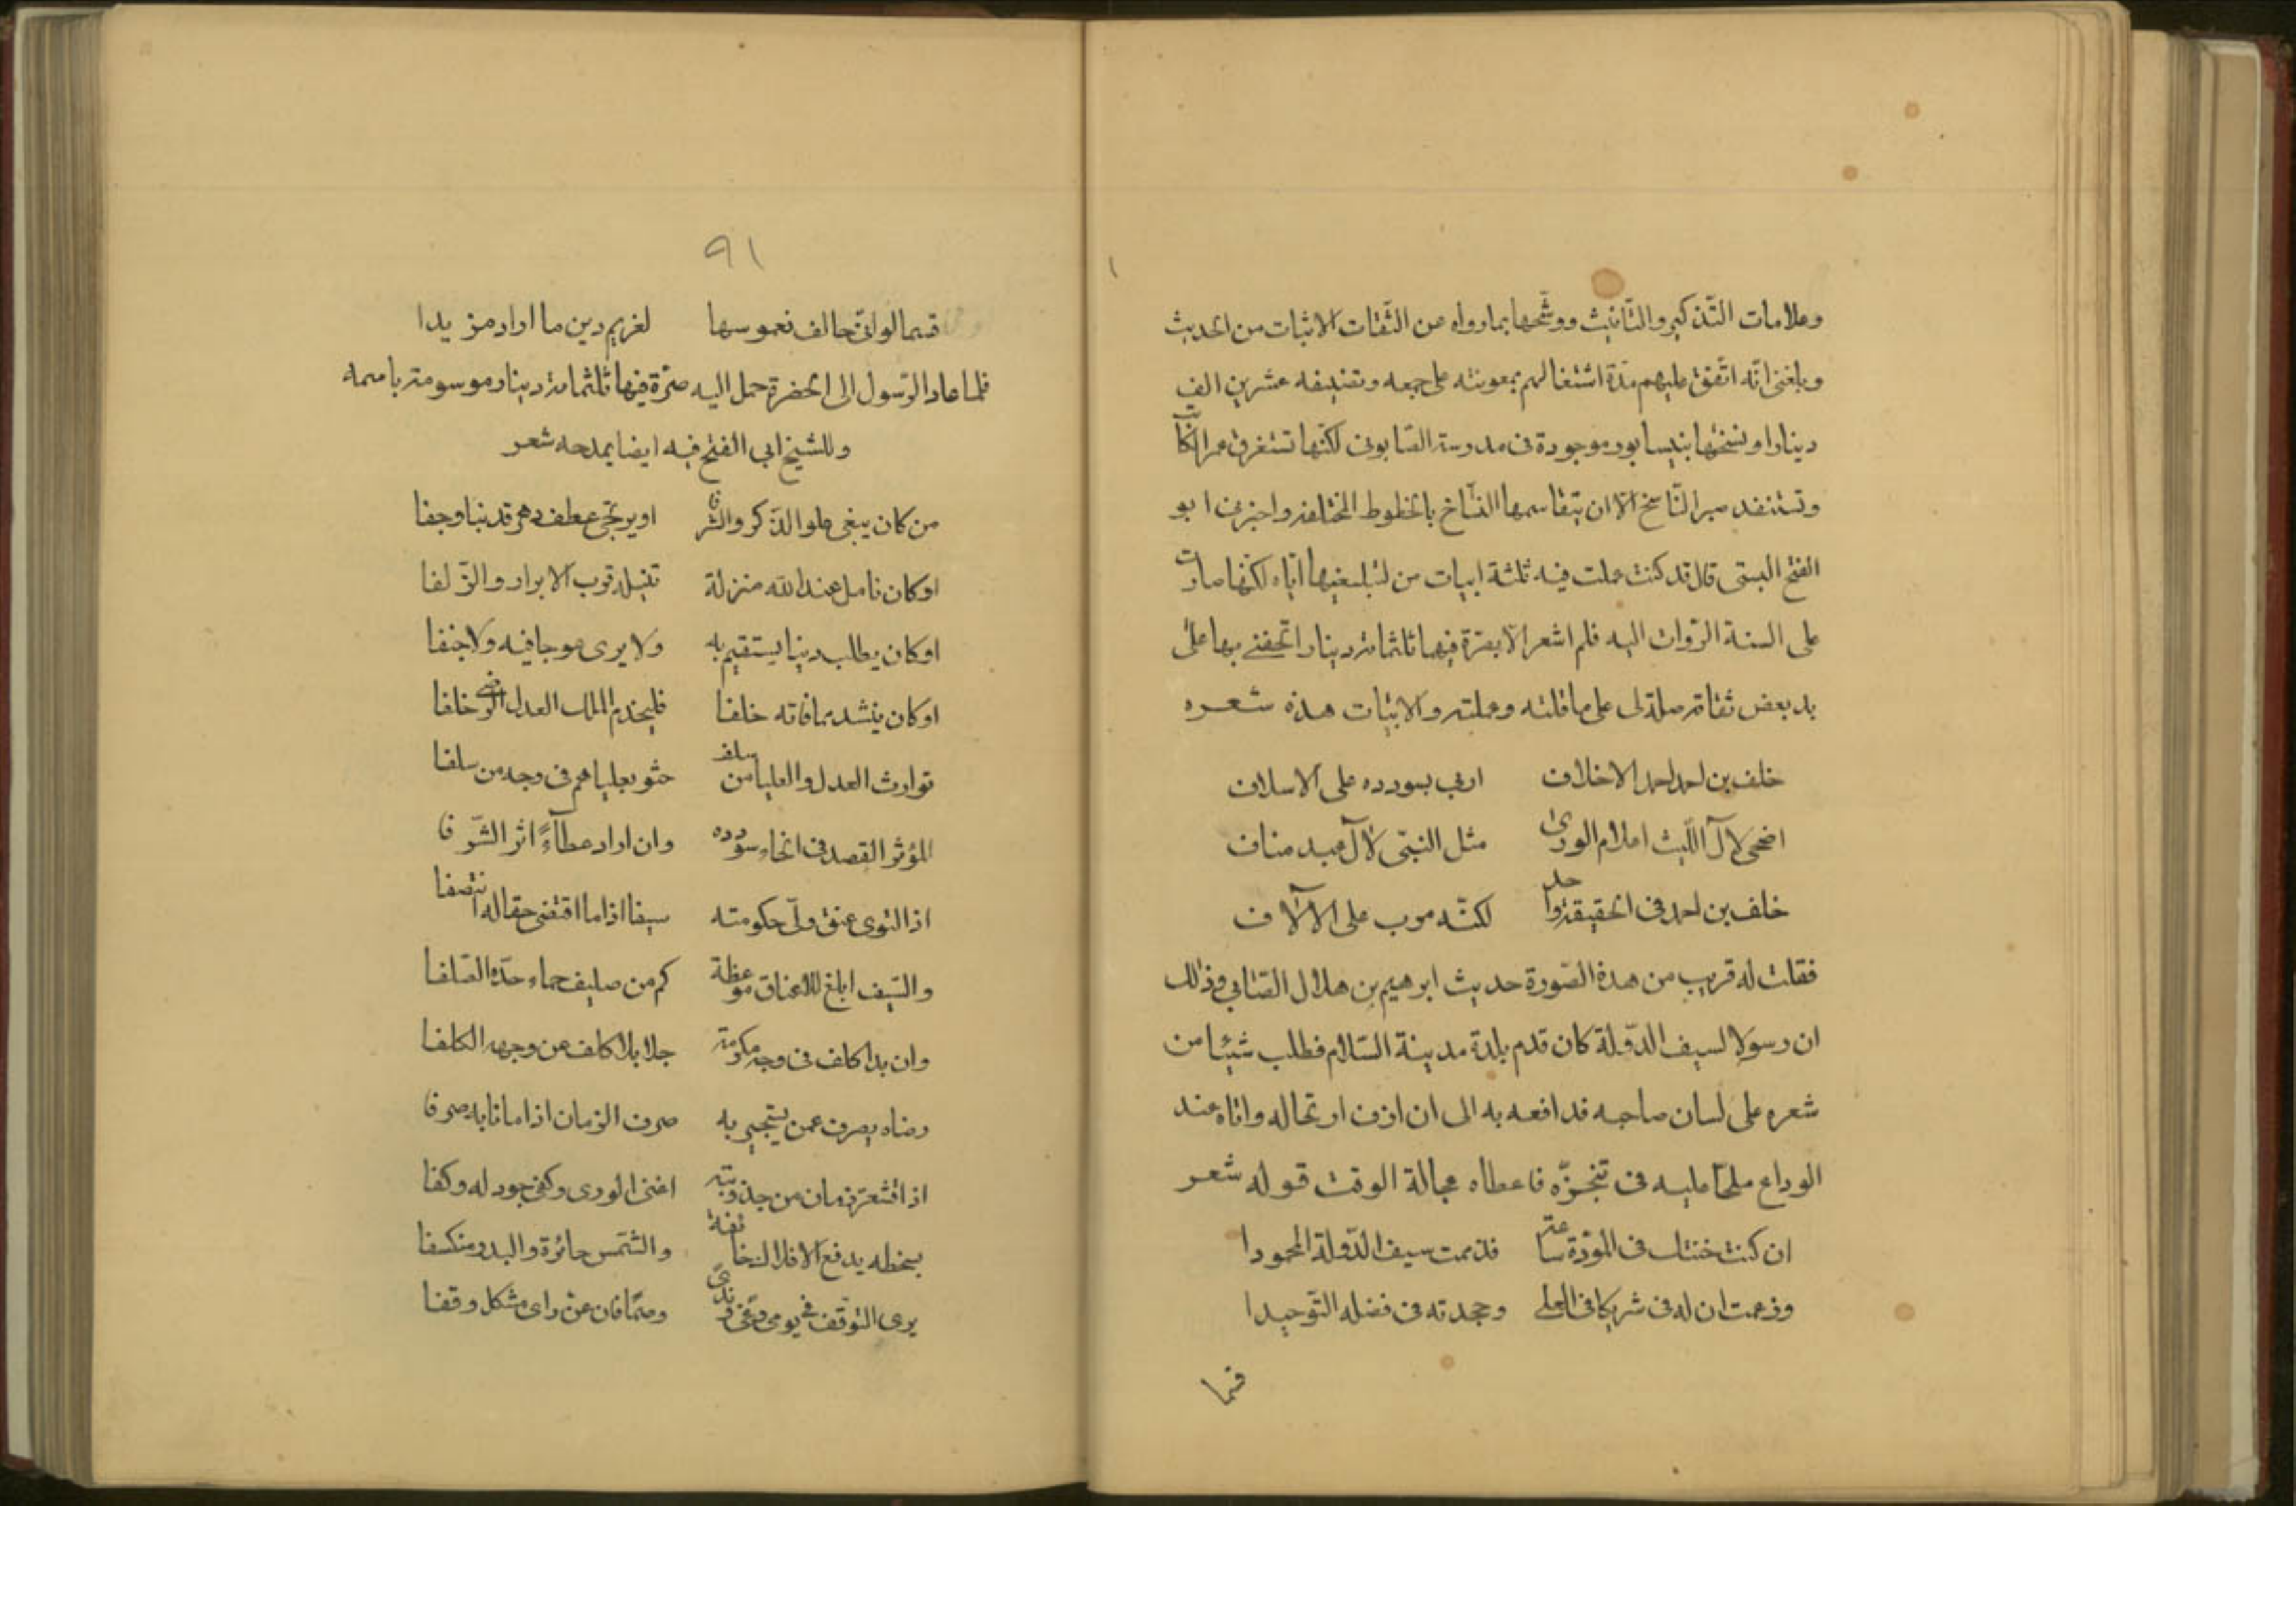 وعلامات التّذكير والتّانيث ووشّحها بما رواه عن الثّقات الاثبات من الحديث
وبلغنى انّه اتّفق عليهم مدّة اشتغالهم بمعونته على جمعه وتصنيفه عشرين الف
دينارا ونسختها بنيسابور موجودة فى مدرسة الصّابونى لكنّها تستغرق عمر الكاتب
وتستنفد صبر النّاسخ الّا ان يتقاسمها النسّاخ بالخطوط المختلفة واخبرنى ابو
الفتح البستى قال قد كنت عملت فيه ثلثة ابيات من لتبليغيها ايّاه لكنّها صارت
على السنة الرّواة اليه فلم اشعر الّا بصرّة فيها ثلثمائة دينار اتحفنى بها على
يد بعض ثقاته صلة لى على ما قلته وعملته والابيات هذة شعره
خلف بن احمد احمد الاخلاف اربى بسودده على الاسلاف
اضحى لآل اللّيث اعلام الورى مثل النبّى لآل عبد مناف
خلف بن احمد فى الحقيقة واحد لكنّه مرب على الآلاف
فقلت له قريب من هذة الصّورة حديث ابرهيم بن هلال الصّابى وذلك
ان رسولا لسيف الدّولة كان قدم بلدة مدينة السّلام فطلب شيئا من
شعره على لسان صاحبه فدافعه به الى ان ازف ارتحاله واتاه عند
الوداع ملحّا عليه فى تنجّزه فاعطاه عجالة الوقت قوله شعر
ان كنت خنتك فى المودّة ساعة فذممت سيف الدّولة المحمودا
وزعمت ان له فى شريكا فى العلى وجحدته فى فضله التّوحيدا
فما
٩١
قسما لو انّى حالف نعموسها لغريم دين ما اراد مزيدا
فلما عاد الرّسول الى الحضرة حمل اليه صرّة فيها ثلثمائة دينار موسومة باسمه
وللشيخ ابى الفتح فيه ايضا يمدحه شعر
من كان يبغى علو الذّكر والشرفا او يرتجى عطف دهر قد نبا وجفا
او كان نامل عند الله منزلة تنيله قرب الابرار والزّلفا
او كان يطلب دينا يستقيم به ولا يرى عوجا فيه ولا جنفا
او كان ينشد مما فاته خلفا فليخدم الملك العدل الرّضى خلفا
توارث العدل والعليا من سلف حثو بعلياهم فى وجه من سلفا
المؤثر القصد فى انحاء سودده وان اراد عطآءً اثر الشّرفا
اذا التوى عنق ولّى حكومته سيفا اذا ما اقتضى حقا له انتصفا
والسّيف ابلغ للاعناق موعظة كم من صليف حماه حدّه الصّلفا
وان بدا كلف فى وجه مكرمة جلا بلا كلف عن وجهه الكلفا
رضاه يصرف عمن يستجير به صرف الزمان اذا ما نابه صرفا
اذا اقشعرّ زمان من جدوبته اغنى الورى وكفى جود له وكفا
بسخطه يدفع الافلاك خائفة والشّمس حائرة والبدر منكسفا
يرى التوقف فى يومى وغى وندىً ومتا فان عنّ راى مشكل وقفا